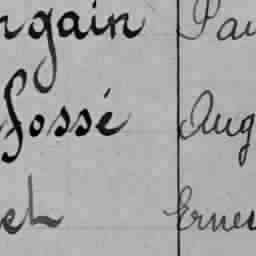 ngain Pau
Fossé Aug
ch Ernes